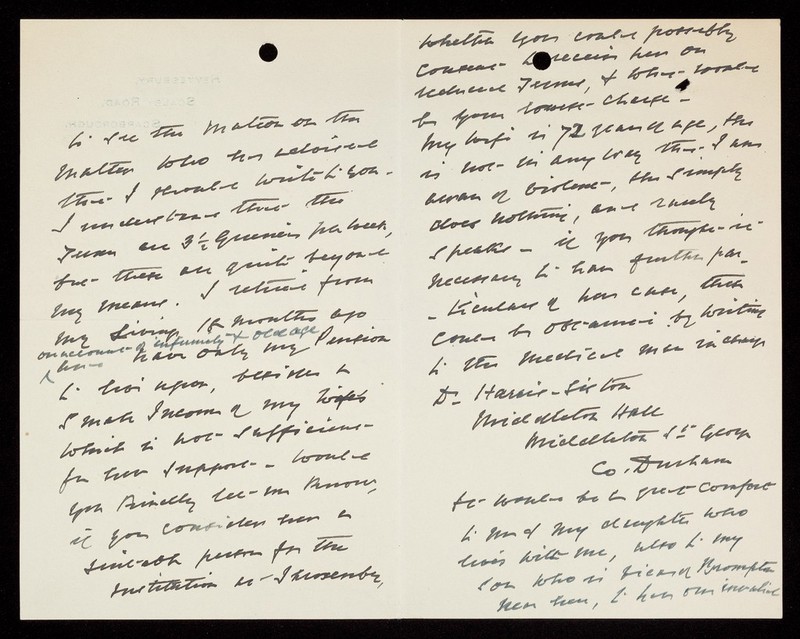 to see the Matron on the
matter who has advised
that I should write to you -
I understand that the
Terms are 3½ Guineas per week,
but these are quite beyond
my means. I retired from
my Living 18 months ago
on account of infirmity & old age
& have only my Pension
to live upon, besides a
small Income of my wife's
which is not sufficient
for her support - would
you kindly let me know,
if you consider her a
suitable person for the
Institution at
whether you could possibly
consent to receive her on
reduced Terms, & what would
be your lowest charge -
My wife is 72 years of age, she
is not in any way that I am
aware of violent, she simply
does nothing, and rarely
speaks - if you thought it
necessary to have further par
- ticulars of her case, these
could be obtained by writing
to the medical man in charge
Dr Harris-Liston
Middleton Hall
Middleton St George
Co. Durham
It would be a great comfort
to me & my daughter who
lives with me, also to my
son who is Vicar of Brompton
near here, to have our invalid